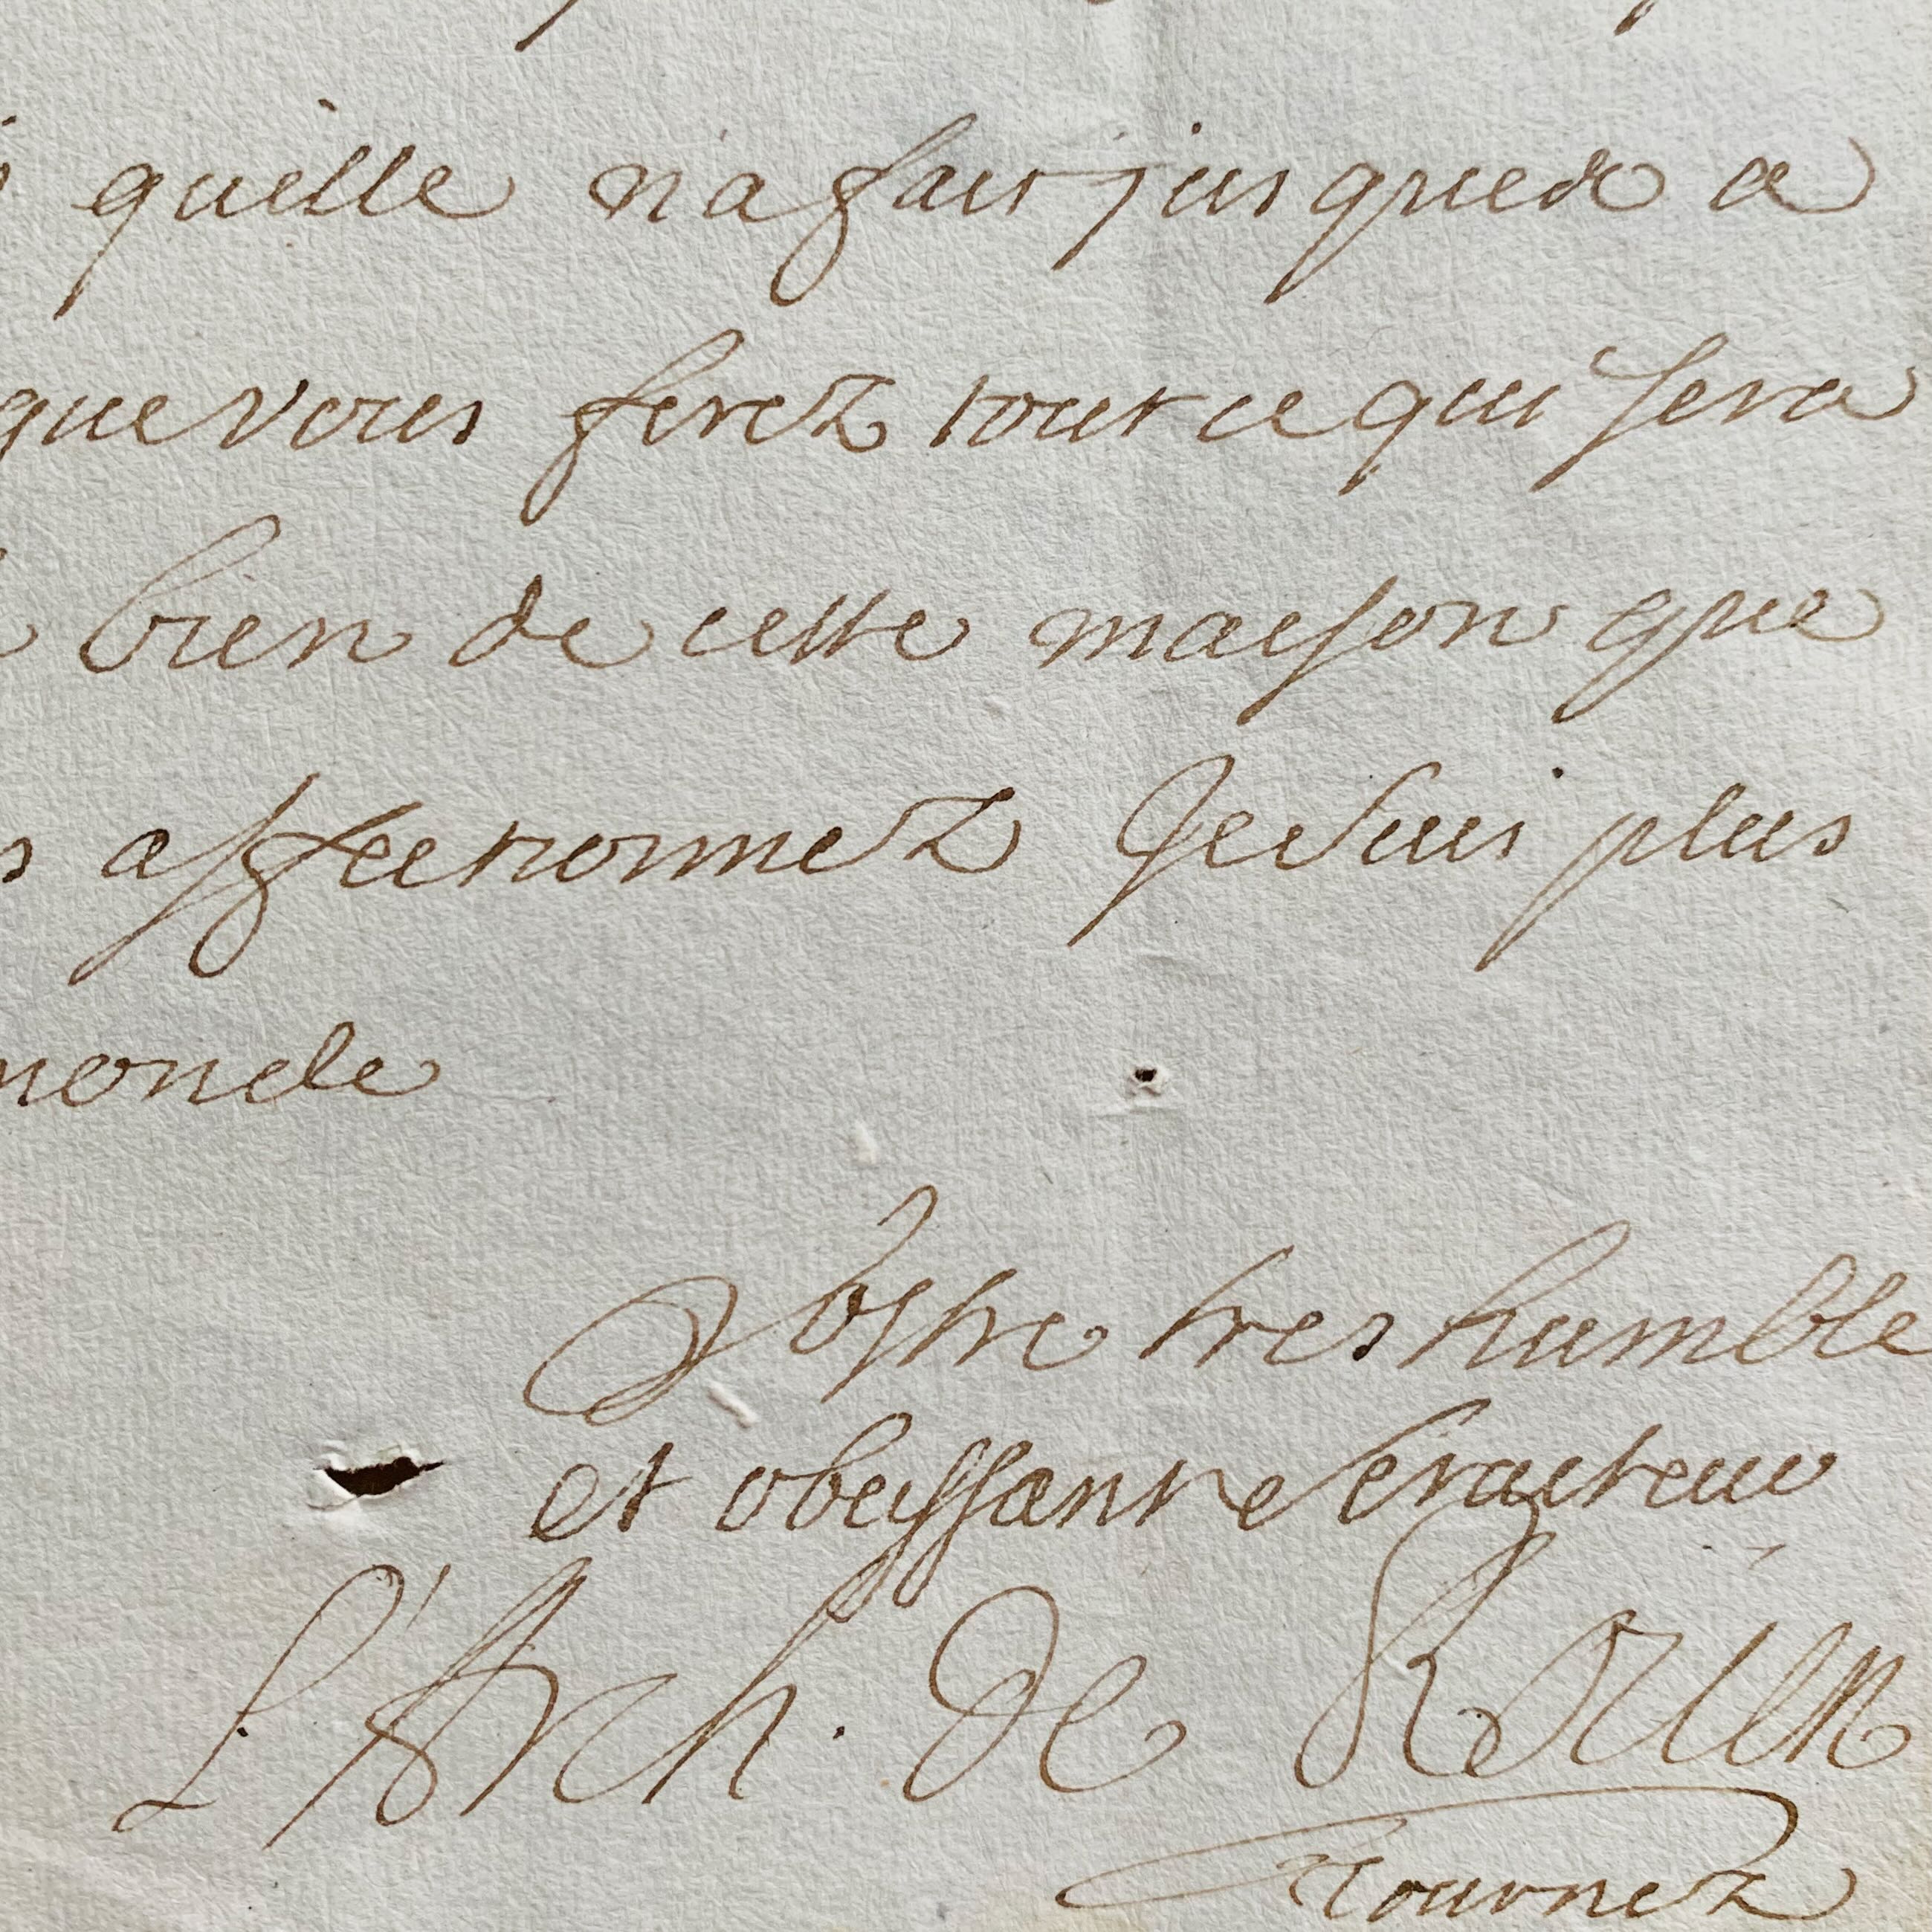 quelle n'a fait jusques a
que vous ferez tout ce qui sera
bien de cette maison que
affectionnez Je suis plus
monde
Vostre tres humble
et obeissant serviteur
L'Arch. de Rouen
Tournez